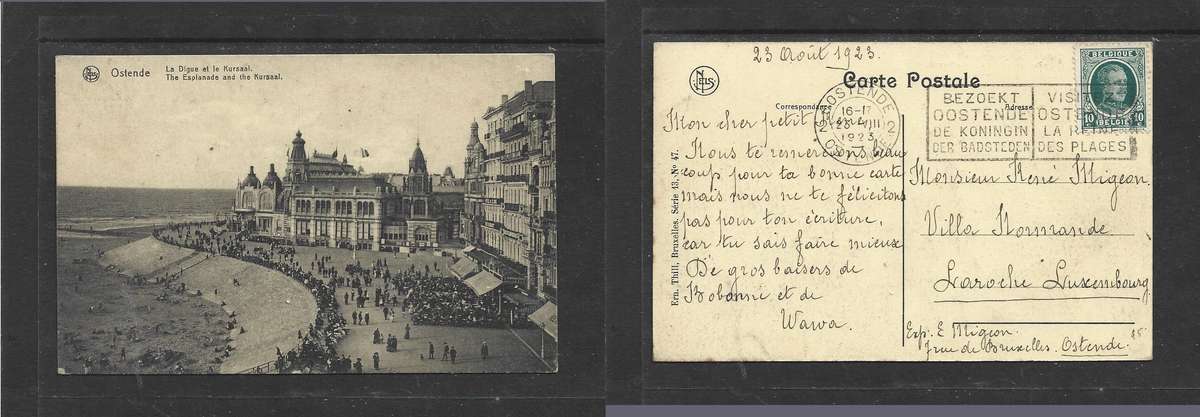 NELS
Ostende
La Digue et le Kursaal.
The Esplanade and the Kursaal.
23 Août 1923.
NELS
Carte Postale
Correspondance
Adresse
OOSTENDE
16-17
2 23-VIII 2
1923
OSTENDE
BEZOEKT
OOSTENDE
DE KONINGIN
DER BADSTEDEN
VISITEZ
OSTENDE
LA REINE
DES PLAGES
BELGIQUE
10 10
Mon cher petit René
Nous te remercions beau
coup pour ta bonne carte
mais nous ne te félicitons
pas pour ton écriture,
car tu sais faire mieux
De gros baisers de
Bobonne et de
Wawa.
Monsieur René Migeon.
Villa Normande
Laroche Luxembourg.
Exp. E Migeon.
7 rue de Bruxelles. Ostende.
Ern. Thill, Bruxelles. Série 43. No 47.